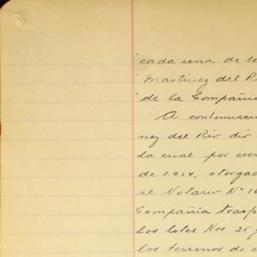 "cada una de l
"Martinez del R
"de la Compañi
A continuac
nez del Rio dir
la cual por esc
de 1924, otorga
el Notario Nº 1
Compañia trasp
los lotes Nos. 25 y
los terrenos de e